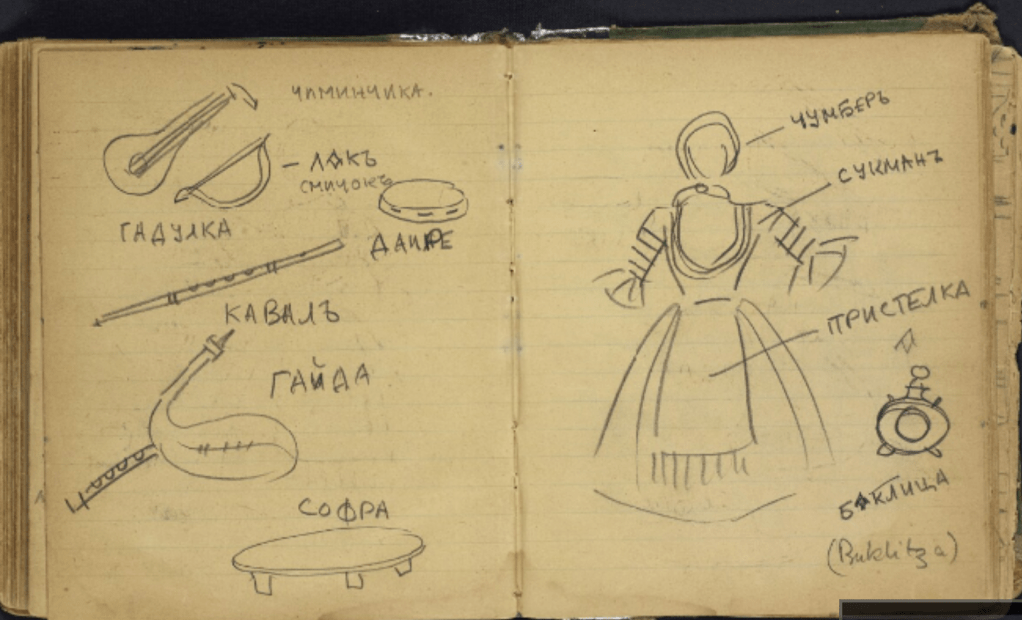 ЧИМИНЧИКА.
— ЛѪКЪ
СМИЧОКЪ
ГАДУЛКА
ДАИРЕ
КАВАЛЪ
ГАЙДА
СОФРА
ЧУМБЕРЪ
СУКМАНЪ
ПРИСТЕЛКА
БѪКЛИЦА
(Buklitza)